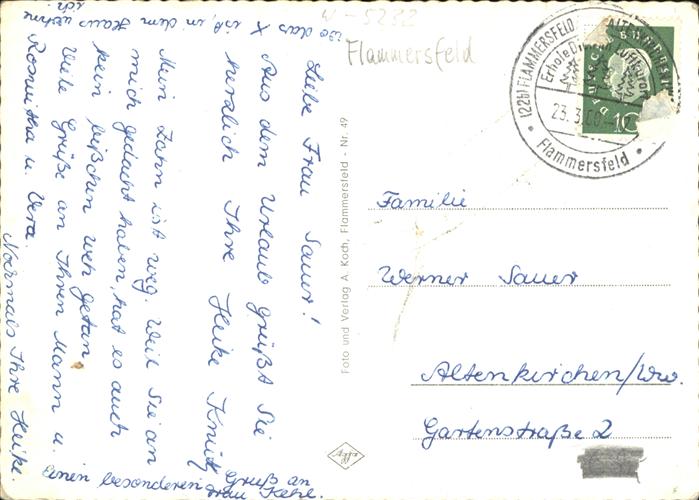 wo das X ist, in dem Haus wohne
ich.
Liebe Frau Sauer!
Aus dem Urlaub grüßt Sie
herzlich Ihre Heike
Mein Zahn ist weg. Weil Sie an
mich gedacht haben, hat es auch
kein bißchen weh getan.
Viele Grüße an Ihren Mann u.
Roswitha u. Vera.
Nochmals Ihre Heike.
Einen besonderen Gruß an
Frau
W-5232
Flammersfeld
(22b) FLAMMERSFELD
23.3.60
Flammersfeld
10
Foto und Verlag A. Koch, Flammersfeld - Nr. 49
Agfa
Familie
Werner Sauer
Altenkirchen/Ww.
Gartenstraße 2